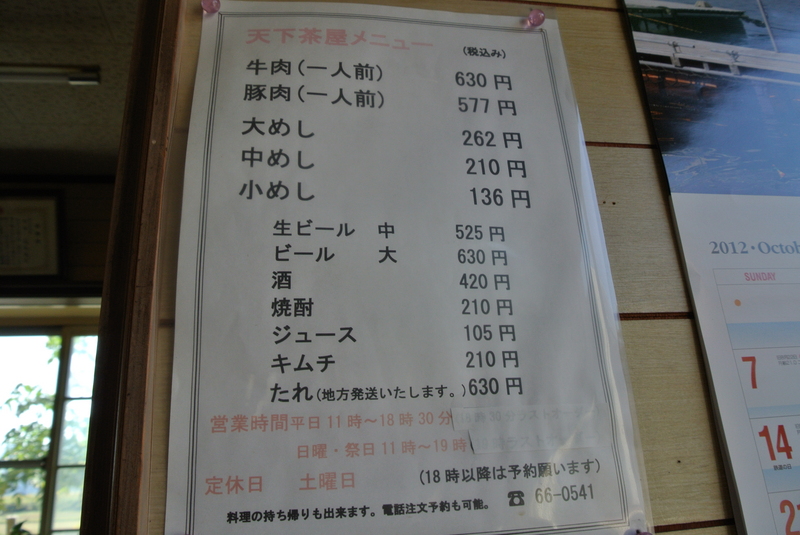 天下茶屋メニュー
(税込み)
牛肉(一人前) 630円
豚肉(一人前) 577円
大めし 262円
中めし 210円
小めし 136円
生ビール 中 525円
ビール 大 630円
酒 420円
焼酎 210円
ジュース 105円
キムチ 210円
たれ(地方発送いたします。)630円
営業時間平日11時～18時30分
日曜・祭日11時～19時
定休日 土曜日 (18時以降は予約願います)
☎ 66-0541
料理の持ち帰りも出来ます。電話注文予約も可能。
2012・Octob
SUNDAY
7
14
2